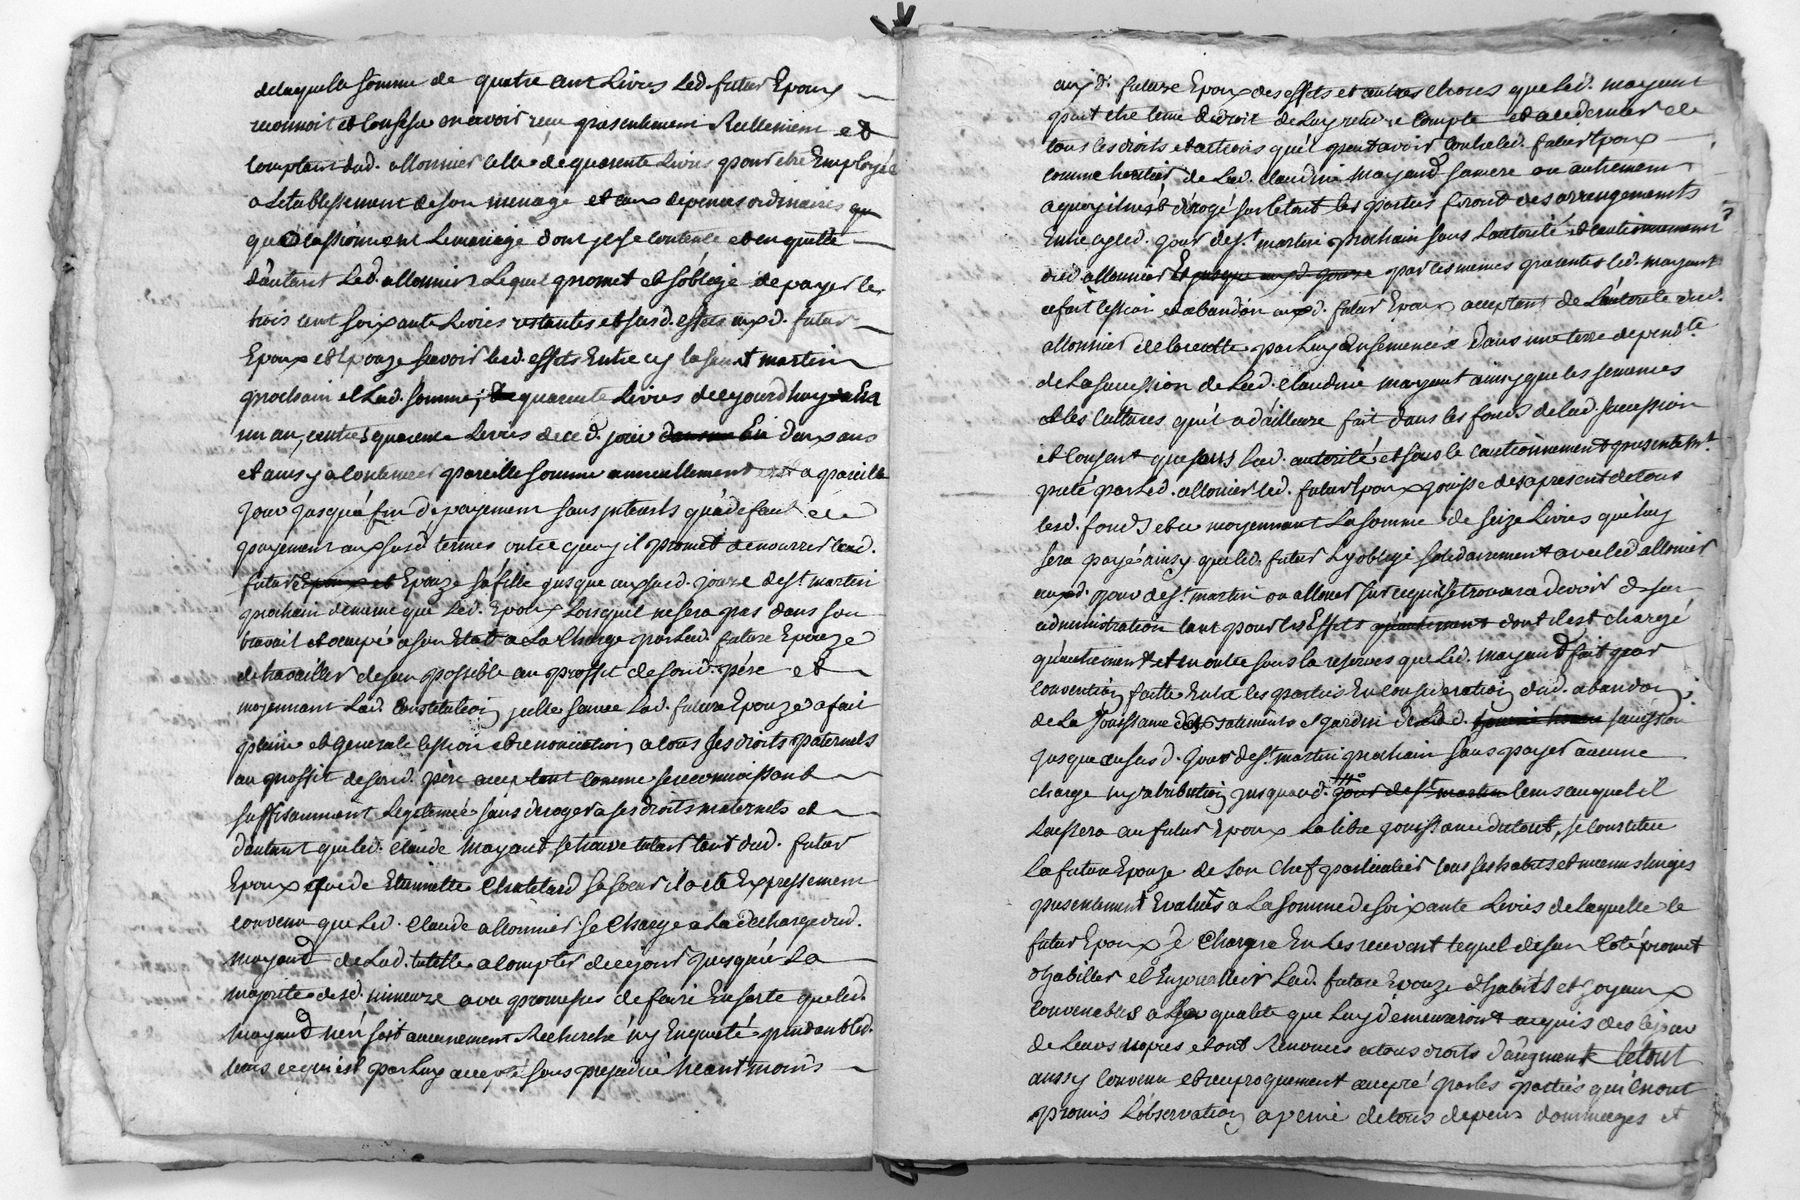 delaquelle somme de quatre cent Livres Led. futur Epoux
reconnoit et confesse en avoir reçu presentement Reellement et
comptant dud. allonnier celle de quarente Livres pour etre Employée
a Letablissement de son menage et aux depences ordinaires qu
quoccassionnent Lemariage dont il se contente et en quitte
d'autant Led. allonnier Lequel promet et s'oblige de payer les
trois cent soixante Livres restantes et susd. effets auxd. futur
Epoux et Epouze scavoir lesd. effets Entre cy la saint martin
prochain et Lad. somme, quarente Livres dece jourdhuy en
un an, autres quarente Livres dece d. jour En deux ans
et ainsy a continuer pareille somme annuellement a pareille
jour jusqu'a fin de payement sans interets qu'a defaut de
payement auxsusd. termes outre quoy il promet de nourrir lad.
future Epouze sa fille jusque au susd. jour de st. martin
prochain de meme que Led. Epoux Lorsquil ne sera pas dans son
travail et occupé a son Etat a La Charge par Lad. future Epouze
de travailler de son possible au proffit de sond. père et
moyennant Lad. Constitution icelle faitte Lad. future Epouze a fait
pleine et generale cession et renonciation a tous ses droits paternels
au proffit de sond. père acceptant comme se reconnoissant
suffisamment Legitimée sans deroger a ses droits maternels et
d'autant que led. Claude Mayand se trouve tuteur tant dud. futur
Epoux que de Etiennette Chatelard sa soeur il a ete Expressement
convenu que Led. Claude allonnier se Charge a La decharge dud.
mayand de Lad. tutelle a compter de ce jour jusqu'a La
majorite de sd. mineure avec promesses de faire En sorte que led.
Mayand n'en soit aucunement Recherché ny Enquieté pendant led.
tems ce qui est par Luy accepté sans prejudice neantmoins
auxd. future Epoux des effets et autres choses que led. mayand
peut etre tenu de droit de Luy rendre compte et au dernier de
tous les droits et actions qu'il peut avoir contre led. futur Epoux
comme heritier de Lad. claudine Mayand sa mere ou autrement
a quoy il n'est derogé sur le tout les parties feront des arrangements
Entre cy led. jour de st. martin prochain sous Lautorité et cautionnement
dud. allonnier par les memes presentes led. mayand
a fait cession et abandon auxd. futur Epoux acceptant de Lautorité dud.
allonnier de la recolte par Luy Ensemencée dans une terre dependte
de La succession de Lad. claudine mayand ainsy que les semences
et les cultures qu'il a d'ailleurs fait dans les fonds de lad. succession
et consent que sous lad. autorité et sous le cautionnement presentemt
preté par Led. allonier led. futur Epoux jouisse des apresent de tous
lesd. fonds et ce moyennant La somme de seize Livres qui luy
sera payé ainsy que led. futur s'y oblige solidairement avec led. allonier
auxd. jour de st. martin ou allouer sur ce qui se trouvera devoir de son
administration tant pour les Effets dont il est chargé
qu'autrement et en outre sous la reserves que Led. mayand fait par
convention faitte Entre les parties En consideration dud. abandon
de La jouissance des batiments et jardin de Lad. succession
jusque au susd. jour de st. martin prochain sans payer aucune
charge ny retribution jusquaud. tems auquel il
Laissera au futur Epoux La libre jouissance du tout, se constitue
La future Epouze de son Chef particulier tous ses habits et menus linges
presentement Evalués a La somme de soixante Livres de Laquelle le
futur Epoux se Charge En Les recevant lequel de son coté promet
d'habiller et Enjoyaller Lad. future Epouze d'habits et joyaux
convenables a sa qualité que Luy demeureront acquis des le jour
de Leurs nopces et ont Renoncés a tous droits d'augment le tout
aussy convenu et reciproquement accepté par les parties qui en ont
promis L'observation a peine de tous depens dommages et